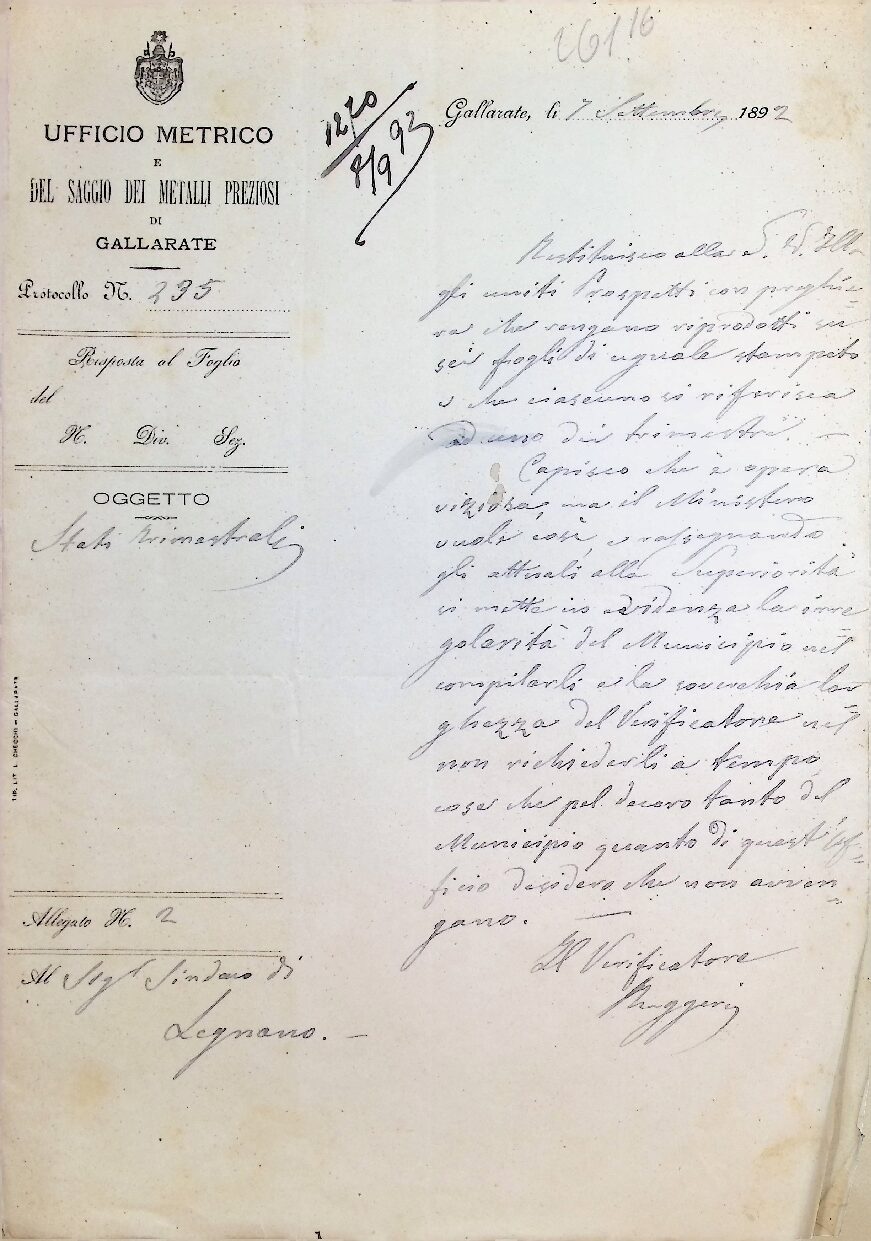 26116
UFFICIO METRICO
E
DEL SAGGIO DEI METALLI PREZIOSI
DI
GALLARATE
Protocollo N. 235
Risposta al Foglio
del
N. Div. Sez.
OGGETTO
Stati trimestrali
TIP. LIT. L. CHECCHI — GALLARATE
Allegato N. 2
Al Sigr Sindaco di
Legnano. —
1270
8/9 92
Gallarate, li 7 Settembre 1892
Restituisco alla S. V. Ill.
gli uniti Prospetti con preghie=
ra che vengano riprodotti su
sei fogli di uguale stampato
e che ciascuno si riferisca
ad uno dei trimestri. —
Capisco che è opera
viziosa, ma il Ministero
vuole così, e rassegnando
gli attuali alla Superiorità
si mette in evidenza la irre=
golarità del Municipio nel
compilarli e la soverchia lar=
ghezza del Verificatore nel
non richiederli a tempo,
cose che pel decoro tanto del
Municipio quanto di quest'Uf=
ficio desidero che non avven=
gano. —
Il Verificatore
Ruggeri